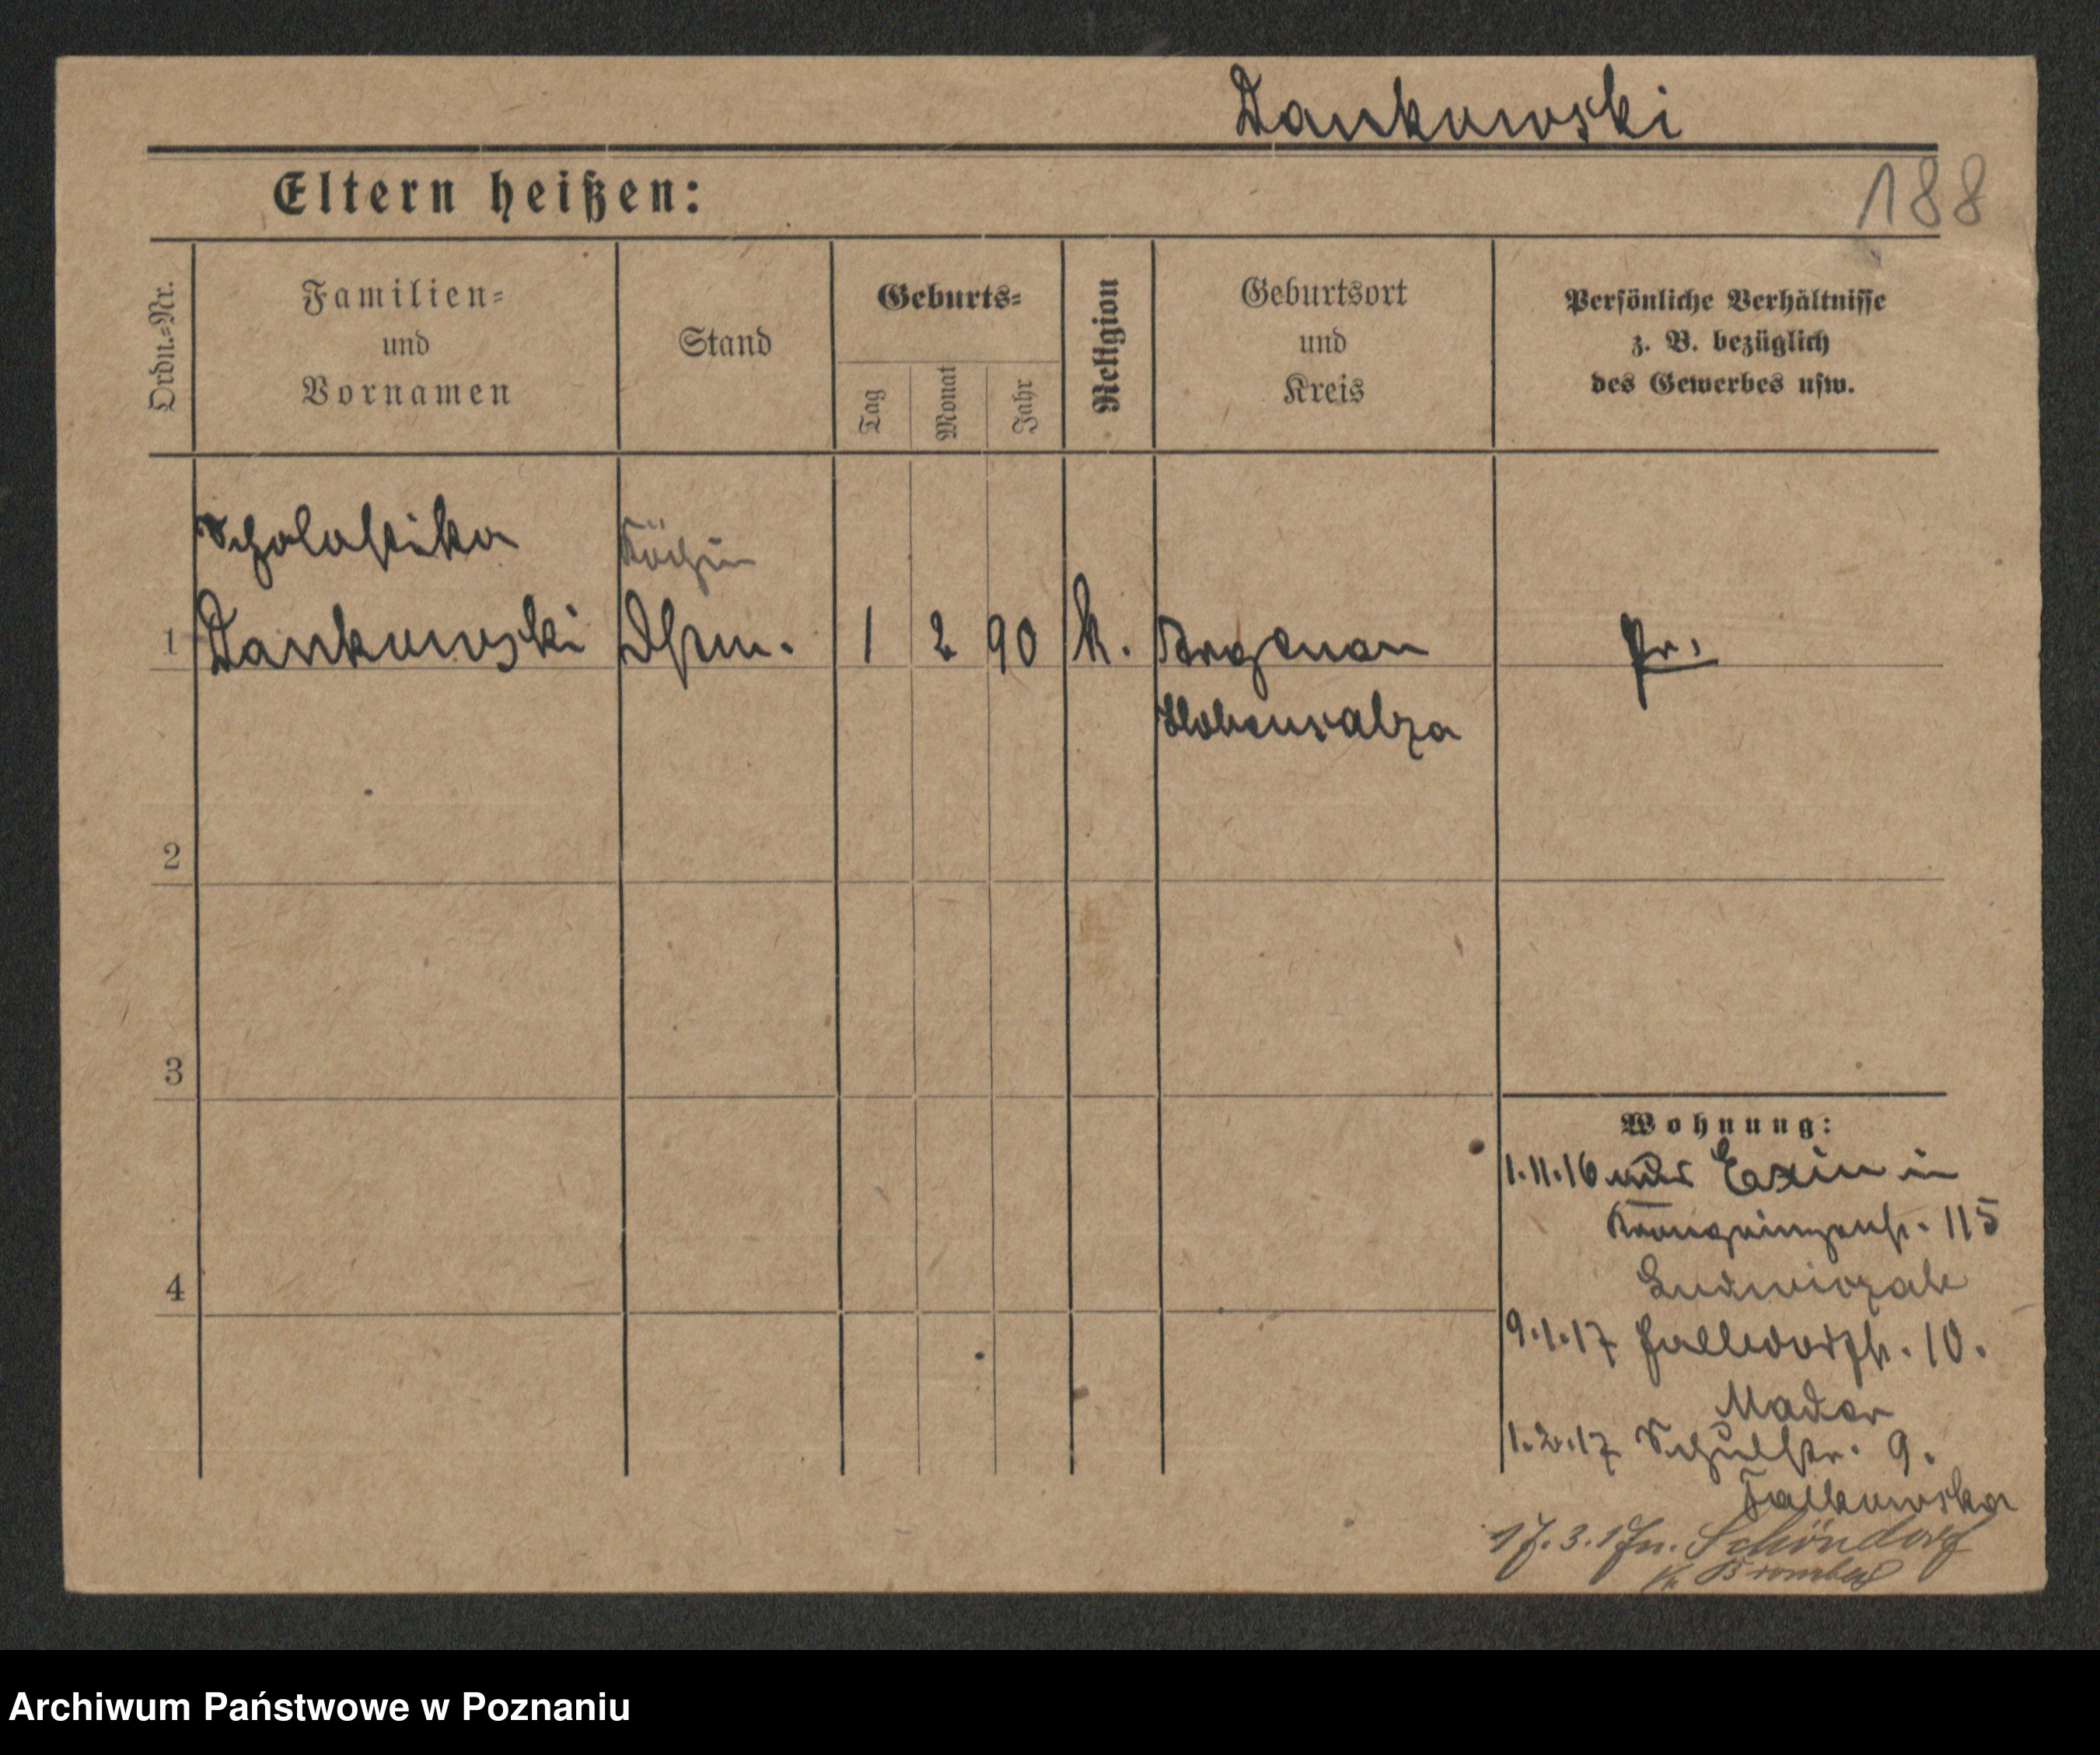 Dankowski
Eltern heißen:
188
Ordn.=Nr.
Familien=
und
Vornamen
Stand
Geburts=
Tag
Monat
Jahr
Religion
Geburtsort
und
Kreis
Persönliche Verhältnisse
z. B. bezüglich
des Gewerbes usw.
Scholastika
Köchin
1 Dankowski Dstm. 1 2 90 k. Argenau Pr.
Hohensalza
2
3
4
Wohnung:
1.11.16 aus Exin in
Kronprinzenstr. 115
9.1.17 10.
Mader
1.2.17 Schulstr. 9.
Falkowska
17.3.17 n. Schöndorf
Kr. Bromberg
Archiwum Państwowe w Poznaniu